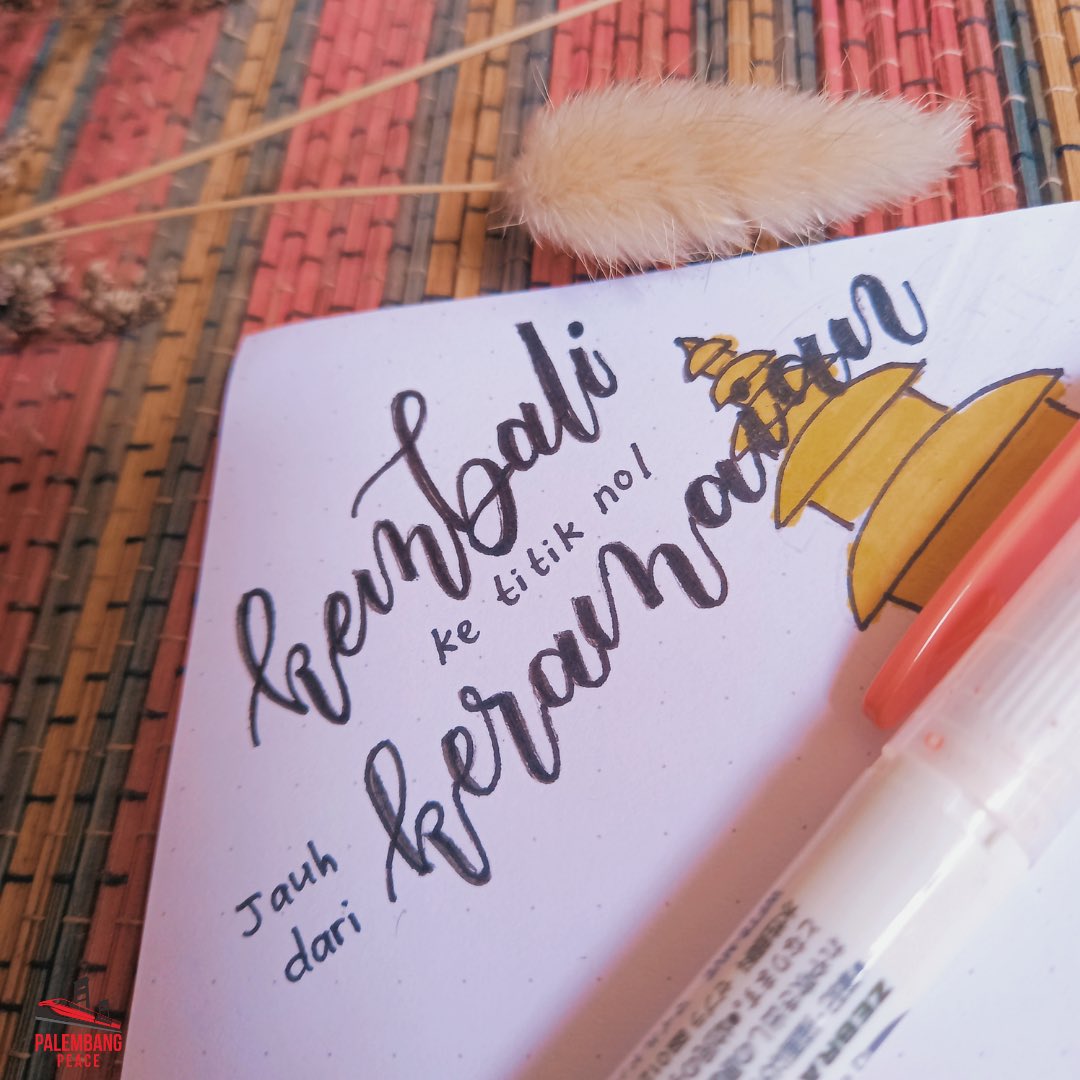 kembali
ke titik nol
Jauh
dari
keramaian
ZEBRA
PALEMBANG
PEACE